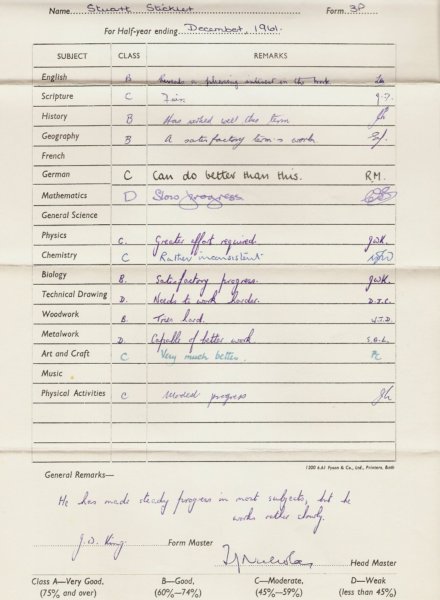 Name Stuart Form 3P
For Half-year ending December, 1961.
SUBJECT CLASS REMARKS
English B Reveals a pleasing interest in the work.
Scripture C Fair
History B Has worked well this term
Geography B A satisfactory term's work
French
German C Can do better than this. R.M.
Mathematics D Slow progress
General Science
Physics C. Greater effort required. J.W.K.
Chemistry C Rather inconsistent
Biology B. Satisfactory progress. J.W.K.
Technical Drawing D. Needs to work harder. D.J.C.
Woodwork B. Tries hard. V.J.D.
Metalwork D. Capable of better work S.G.L.
Art and Craft C Very much better.
Music
Physical Activities C progress
1200 6.61 Fyson & Co., Ltd., Printers, Bath
General Remarks—
He has made steady progress in most subjects, but he
works rather slowly.
J.D. King Form Master
Head Master
Class A—Very Good. B—Good, C—Moderate, D—Weak
(75% and over) (60%—74%) (45%—59%) (less than 45%)